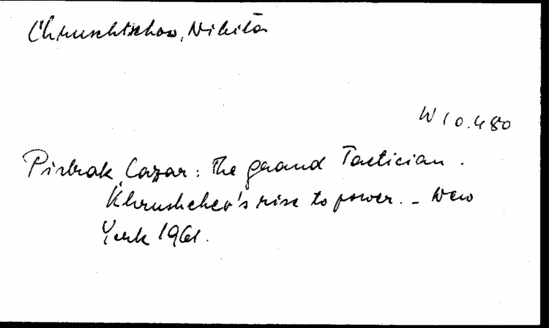 Chruschtschow, Nikita
W 10.480
Pistrak, Lazar: The grand Tactician.
Khrushchev's rise to power. - New
York 1961.